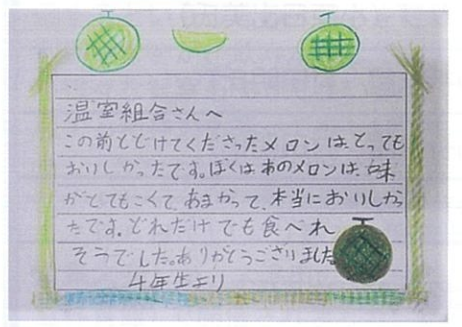 温室組合さんへ
この前とどけてくださったメロンは、とっても
おいしかったです。ぼくは、あのメロンは、味
がとてもこくて、あまかって、本当においしかっ
たです。どれだけでも食べれ
そうでした。ありがとうございました
4年生より